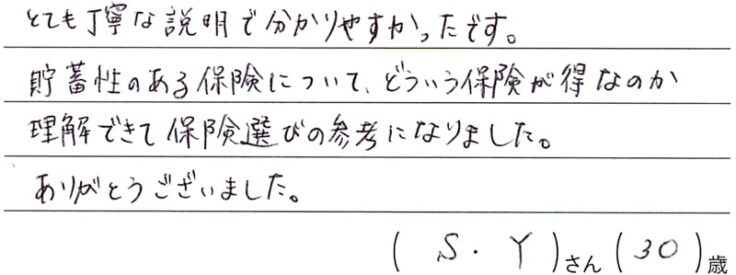 とても丁寧な説明で分かりやすかったです。
貯蓄性のある保険について、どういう保険が得なのか
理解できて保険選びの参考になりました。
ありがとうございました。
( S. Y )さん ( 30 )歳